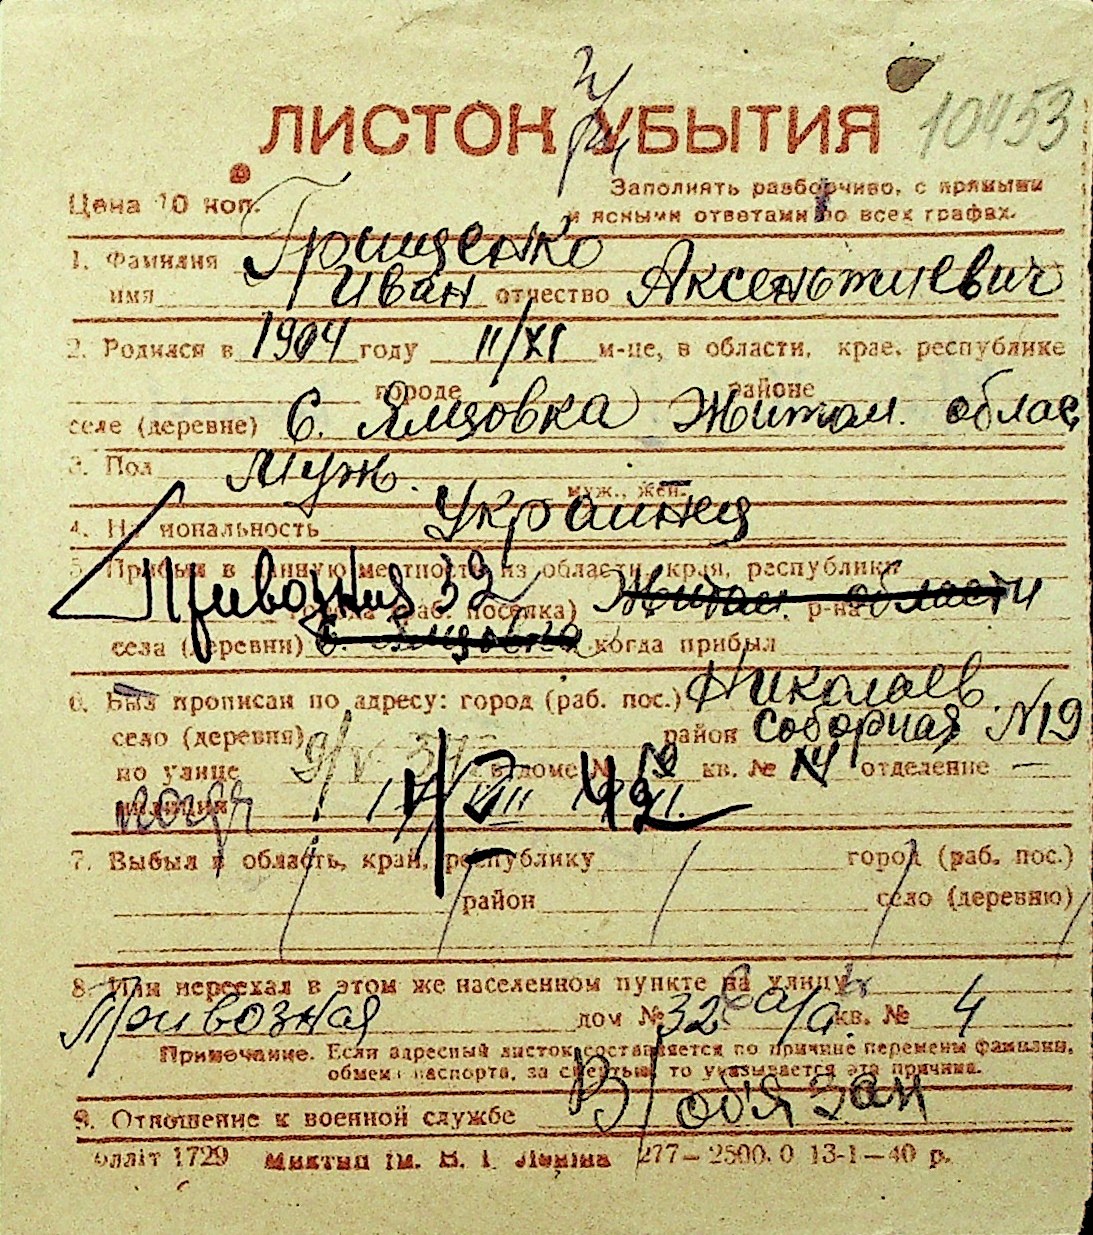 10453
ЛИСТОК УБЫТИЯ
Цена 10 коп.
Заполнять разборчиво, с прямыми
и ясными ответами по всех графах.
1. Фамилия Грищенко
имя Иван отчество Аксентиевич
2. Родился в 1904 году 11/XI м-це, в области, крае, республике
городе районе
селе (деревне) с. Ямцовка Житом. облас
3. Пол Муж.
муж., жен.
4. Национальность Украинец
5. Прибыл в данную местность из области, края, республики
Привозная 32 города (раб. поселка) Житом. р-на области
села (деревни) с. Ямцовка когда прибыл
6. Был прописан по адресу: город (раб. пос.) Николаев
село (деревня) район Соборная №19
по улице в доме № 19 кв. № 4 отделение —
милиции
7. Выбыл в область, край, республику город (раб. пос.)
район село (деревню)
8. Или переехал в этом же населенном пункте на улицу
Привозная дом № 32 кв. № 4
Примечание. Если адресный листок составляется по причине перемены фамилии,
обмена паспорта, за смертью то указывается эта причина.
9. Отношение к военной службе В/обязан
олліт 1729 Миктип ім. В. І. Леніна 277—2500.0 13-1—40 р.